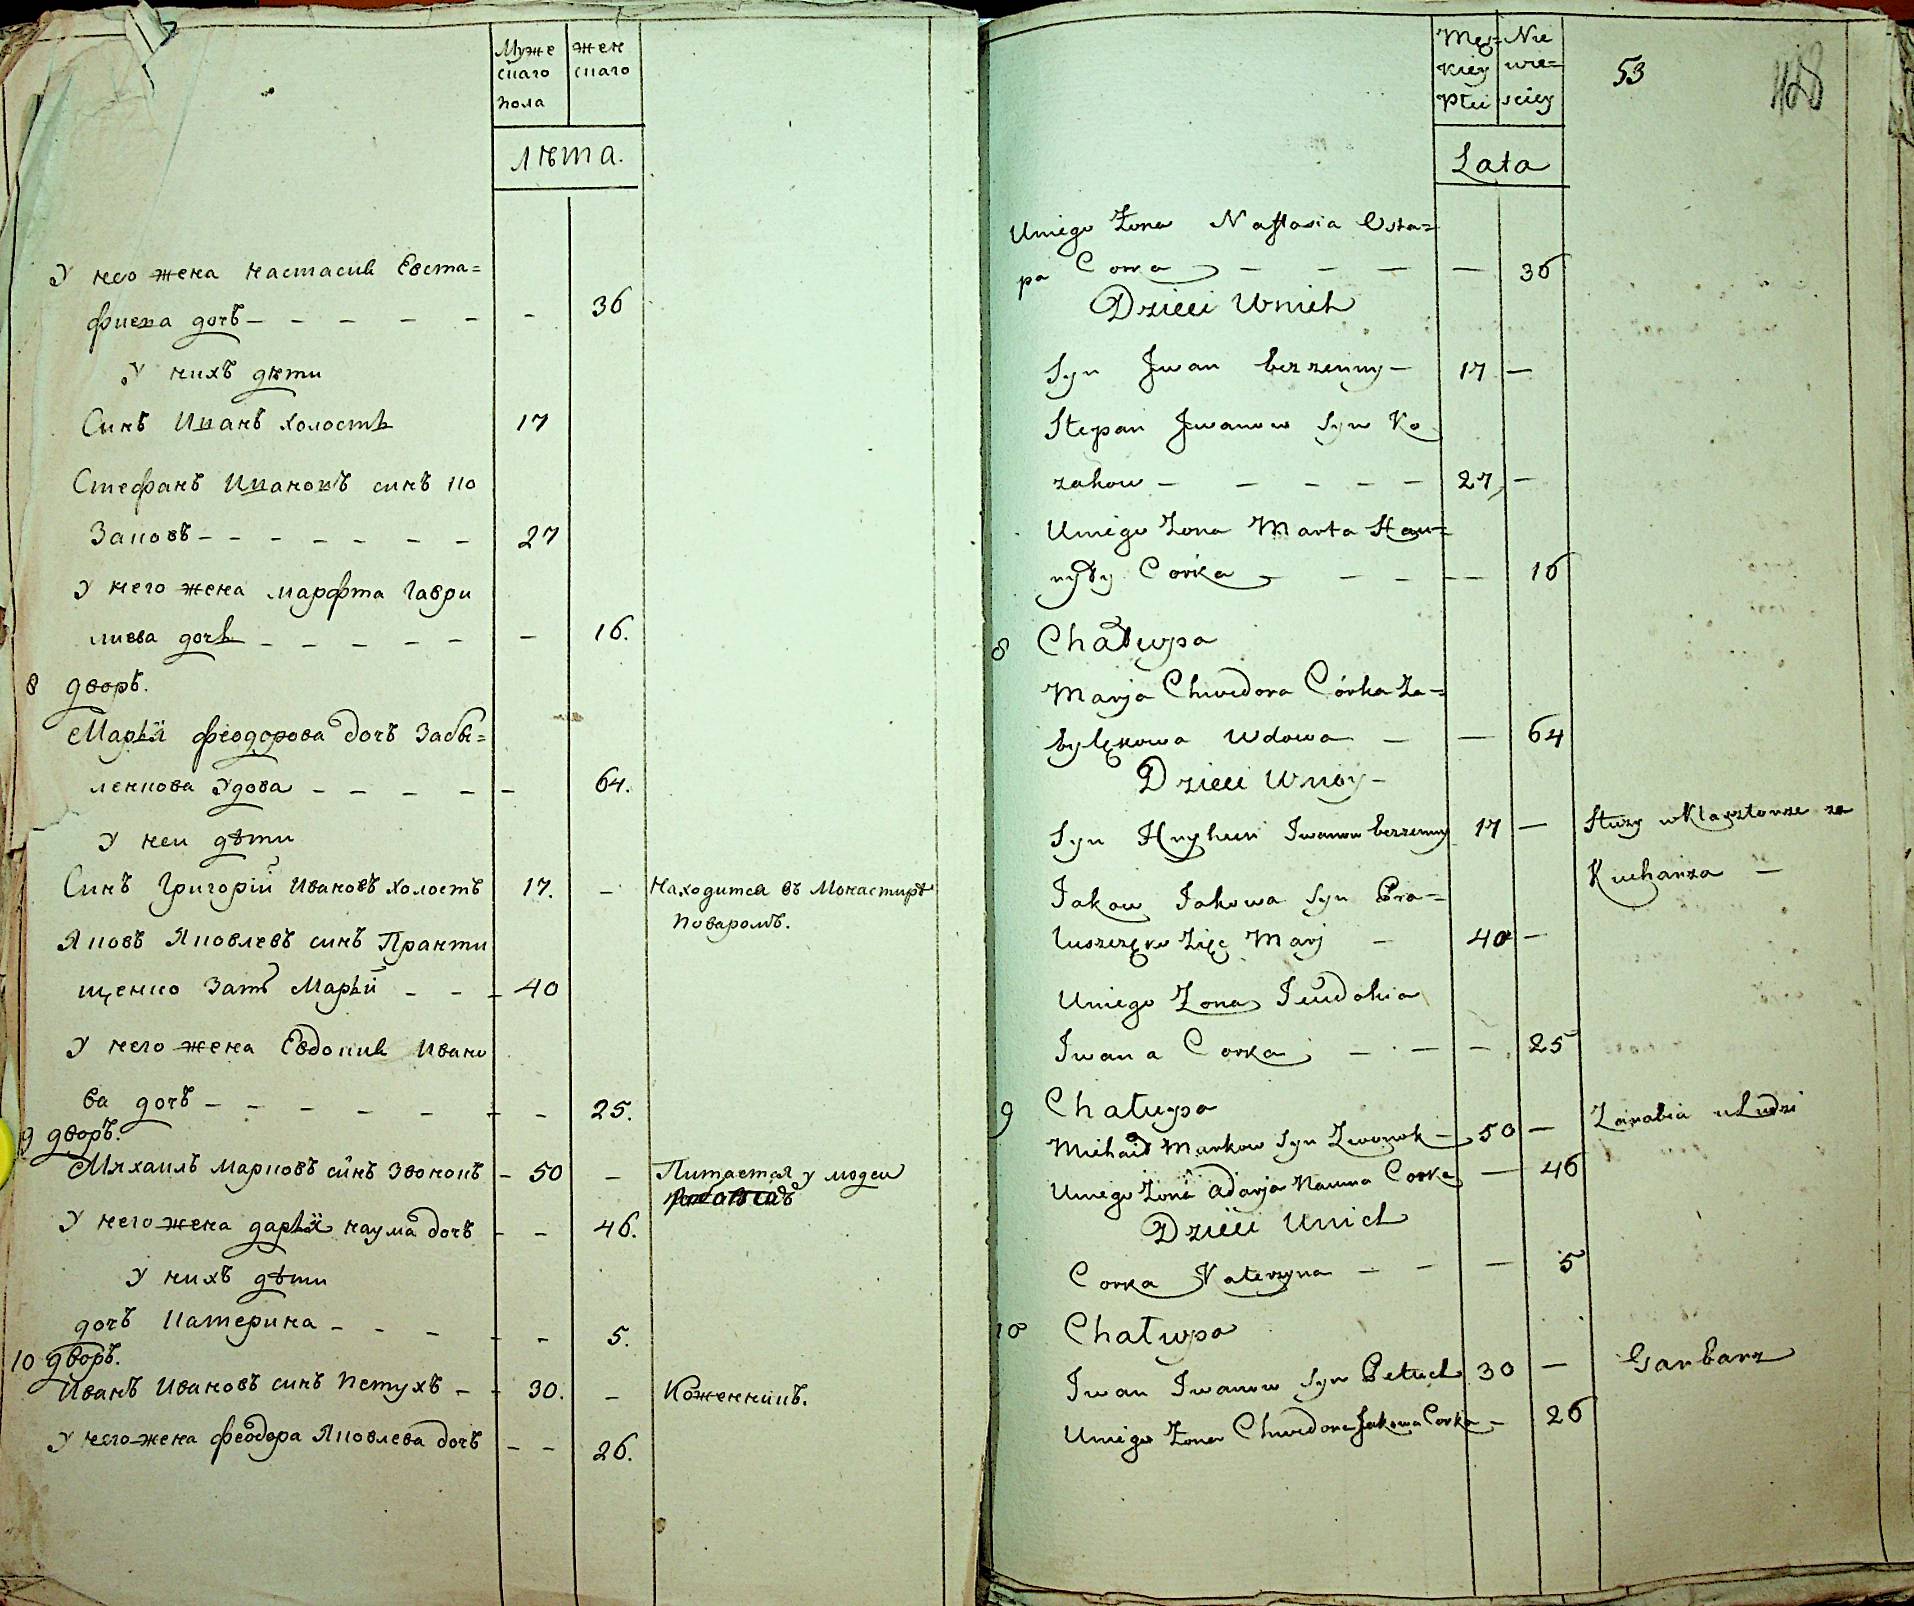 Муже
скаго
пола
жен
скаго
лѣта.
У него жена Настасия Евста=
фиева дочь – – – – – – 36
У нихъ дѣти
Синъ Иванъ холостъ 17
Стефанъ Ивановъ синъ Ко
заковъ – – – – – – – 27
У него жена Марфта Гаври
лиева дочь – – – – – – 16.
8 дворъ.
Марья феодорова дочъ Забы=
ленкова Удова – – – – – 64.
У неи дѣти
Синъ Григорій Ивановъ холостъ 17. – Находится въ Монастырѣ
поваромъ.
Яковъ Яковлевъ синъ Практи
щенко Зять Марьи – – – 40
У него жена Евдокия Ивано
ва дочъ – – – – – – – 25.
9 дворъ.
Михаилъ Марковъ синъ Звонокъ – 50 – Питается у людеи
У него жена дарья наума дочъ – – 46.
У нихъ дѣти
дочъ Катерина – – – – – 5.
10 дворъ.
Иванъ Ивановъ синъ Петухъ – – 30. – Коженникъ.
У него жена феодора Яковлева дочъ – – 26.
Męz=
kiey
Płci
Nie
wie=
sciey
53
128
Lata
Uniego Żona Nastasia Osta=
pa Corka – – – – 36
Dzieci Unich
Syn Jwan bezzenny – 17 –
Stepan Jwanow Syn Ko
zakow – – – – – 27 –
Uniego Zona Marta Haw=
ryły Córka – – – – 16
8 Chałupa
Marja Chwedora Córka Za=
byłękowa Wdowa – – 64
Dzieci Uniey –
Syn Hryhuri Iwanow bezzenny 17 – Słuzy w Klasztorze za
Kucharza –
Jakow Jakowa Syn Pra=
tuszczęko Zięc Marj – 40 –
Uniego Zona Jeudokia
Iwana Corka – – – 25
9 Chałupa
Michaid Markow Syn Zwonok – 50 – Zarabia u Ludzi
Uniego Zona adarja Nauma Corka – 46
Dzieci Unich
Corka Katerzyna – – – 5
10 Chałupa
Iwan Iwanow Syn Petuch 30 – Garbarz
Uniego Zona Chwedora Jakowa Corka – 26